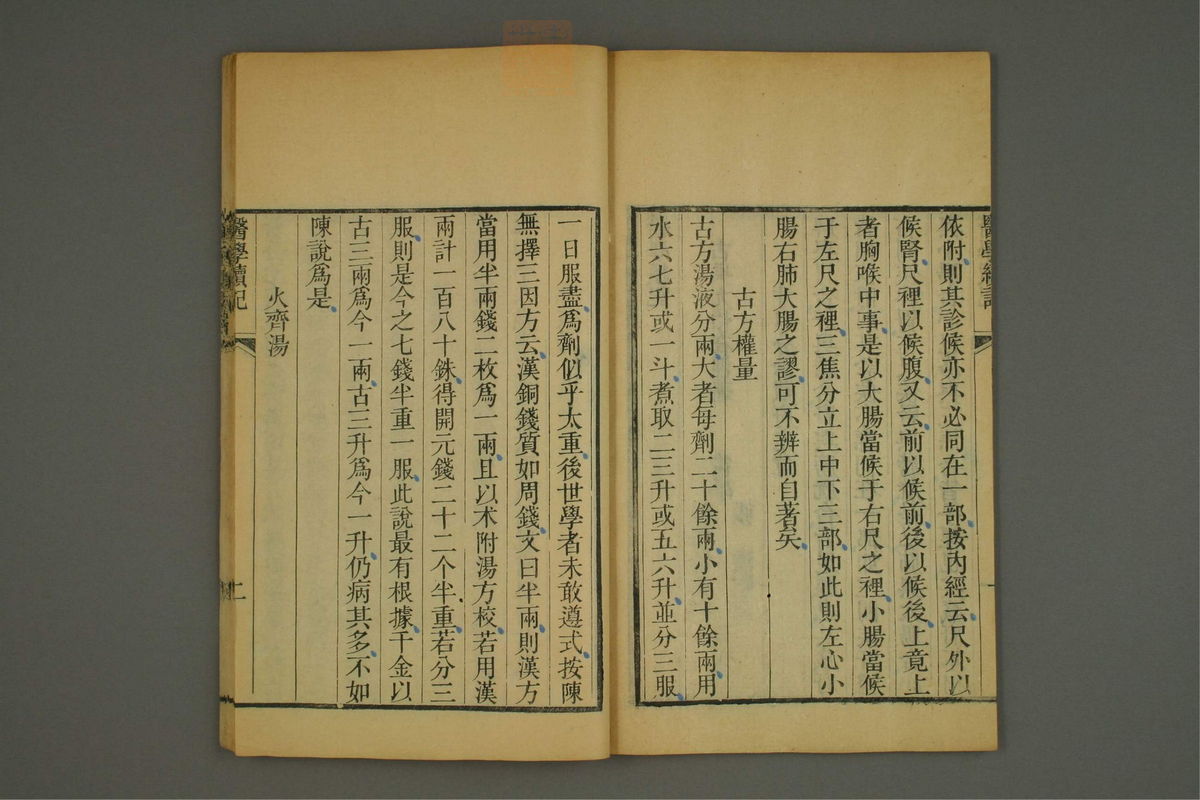 醫學續記
依附則其診候亦不必同在一部按內經云尺外以
候腎尺裡以候腹又云前以候前後以候後上竟上
者胸喉中事是以大腸當候于右尺之裡小腸當候
于左尺之裡三焦分立上中下三部如此則左心小
腸右肺大腸之謬可不辨而自著矣
古方權量
古方湯液分兩大者每劑二十餘兩小有十餘兩用
水六七升或一斗煮取二三升或五六升並分三服
一日服盡爲劑似乎太重後世學者未敢遵式按陳
無擇三因方云漢銅錢質如周錢文曰半兩則漢方
當用半兩錢二枚爲一兩且以朮附湯方校若用漢
兩計一百八十銖得開元錢二十二个半重若分三
服則是今之七錢半重一服此說最有根據千金以
古三兩爲今一兩古三升爲今一升仍病其多不如
陳說爲是
火齊湯
醫學讀記